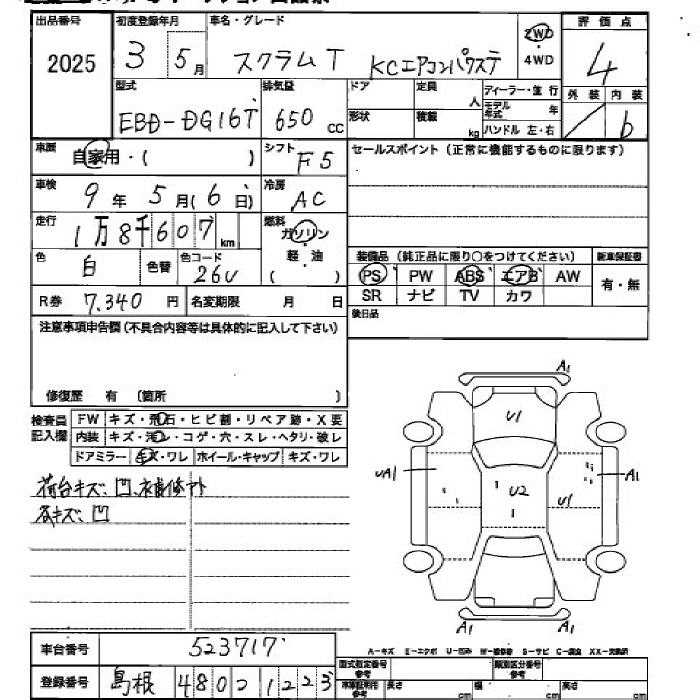 出品番号
2025
初度登録年月
3 5月
車名・グレード
スクラムT KCエアコンパワステ
2WD
・
4WD
評価点
4
外装 内装
b
型式
EBD-DG16T
排気量
650 cc
ドア
形状
定員 人
積載 kg
ディーラー・並行
モデル年式 年
ハンドル 左・右
車歴
自家用・( )
シフト
F5
セールスポイント(正常に機能するものに限ります)
車検
9年 5月(6日)
冷房
AC
走行
1万8千607km
燃料
ガソリン
・
軽・油
( )
色
白
色替
色コード
26U
装備品(純正品に限り○をつけてください)
新車保証書
PS PW ABS エアB AW
SR ナビ TV カワ
有・無
R券 7,340円
名変期限 月 日
後日品
注意事項申告欄(不具合内容等は具体的に記入して下さい)
修復歴 有(箇所 )
検査員
記入欄
FW キズ・飛石・ヒビ割・リペア跡・X要
内装 キズ・汚レ・コゲ・穴・スレ・ヘタリ・破レ
ドアミラー キズ・ワレ ホイール・キャップ キズ・ワレ
荷台キズ、凹、補修アト
下キズ、凹
A1
U1
UA1
U2
U1
A1
A1 A1
A-キズ E-エクボ U-凹み W-補修跡 S-サビ C-腐食 XX-交換済
車台番号
523717
登録番号
島根 480 2 1223
型式指定番号
参考
類別区分番号
参考
車庫証明用
参考
長さ cm 幅 cm 高さ cm